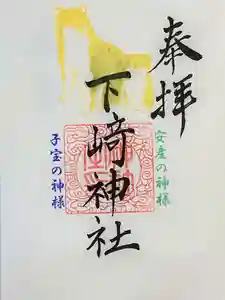 奉拝
安産の神様
下崎神社
子宝の神様